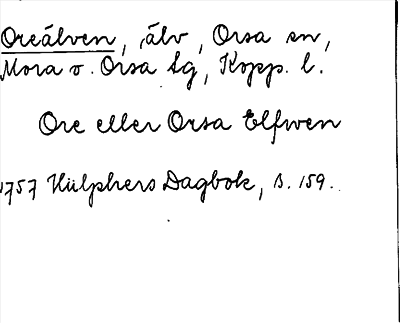 Oreälven, älv, Orsa sn,
Mora o. Orsa tg, Kopp. l.
Ore eller Orsa Elfwen
1757 Hülphers Dagbok, s. 159.